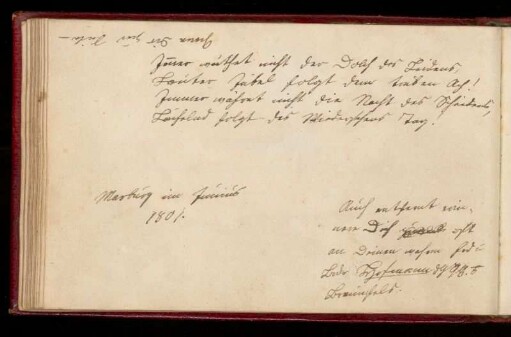 Immer wüthet nicht der Dolch des Leidens,
Lauter Jubel folgt dem trüben Ach!
Immer währet nicht die Nacht des Scheidens,
Lächelnd folgt des Wiedersehens Tag.
Marburg im Junius
1801.
Auch entfernt erin-
nere Dich oft
an Deinen wahren
Hofmann
Braunfels.